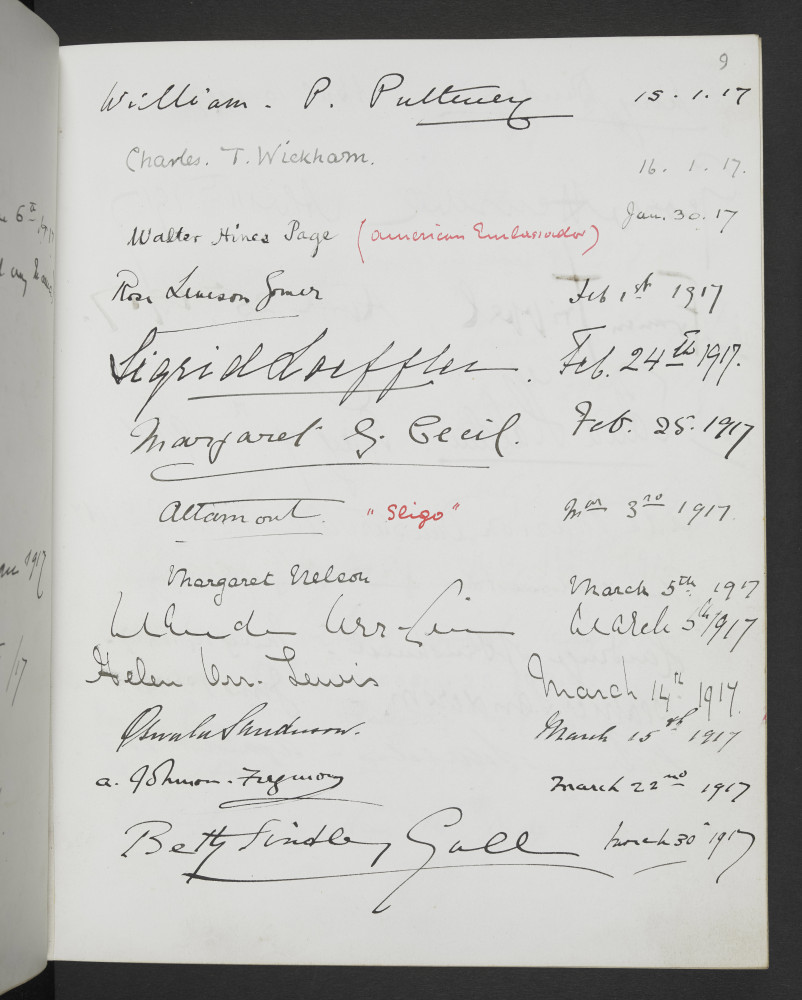 9
William. P. Pulteney 15.1.17
Charles. T. Wickham. 16.1.17.
Walter Hines Page (American Embassador) Jan. 30. 17
Rose Leveson Gower Feb 1st 1917
Sigrid Loeffler. Feb. 24th 1917.
Margaret G. Cecil. Feb. 25. 1917
Altamont. "Sligo" Mar 3rd 1917.
Margaret Nelson March 5th 1917
Orr- March 5th 1917
Helen Orr-Lewis March 14th 1917.
Oswald Sanderson. March 15th 1917
a. Johnson-Ferguson March 22nd 1917
Betty Findlay Gall March 30 1917
6th
1917
/17